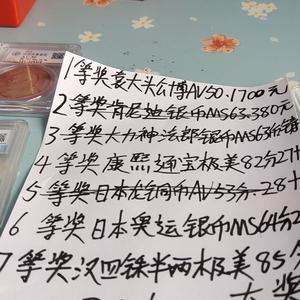 1等奖袁大头公博AV50.1700元
2等奖肯尼迪银币MS63.380元
3等奖大力神法郎银币MS63分
4等奖康熙通宝极美82分27
5等奖日本龙铜币AV53分.28
6等奖日本奥运银币MS64分2
7等奖汉四铢半两极美85分
大奖